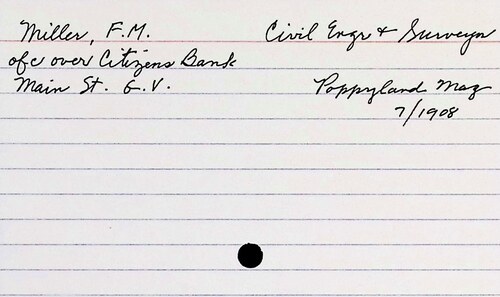 Miller, F.M. Civil Engr & Surveyor
ofc over Citizens Bank
Main St. G.V. Poppyland Mag
7/1908